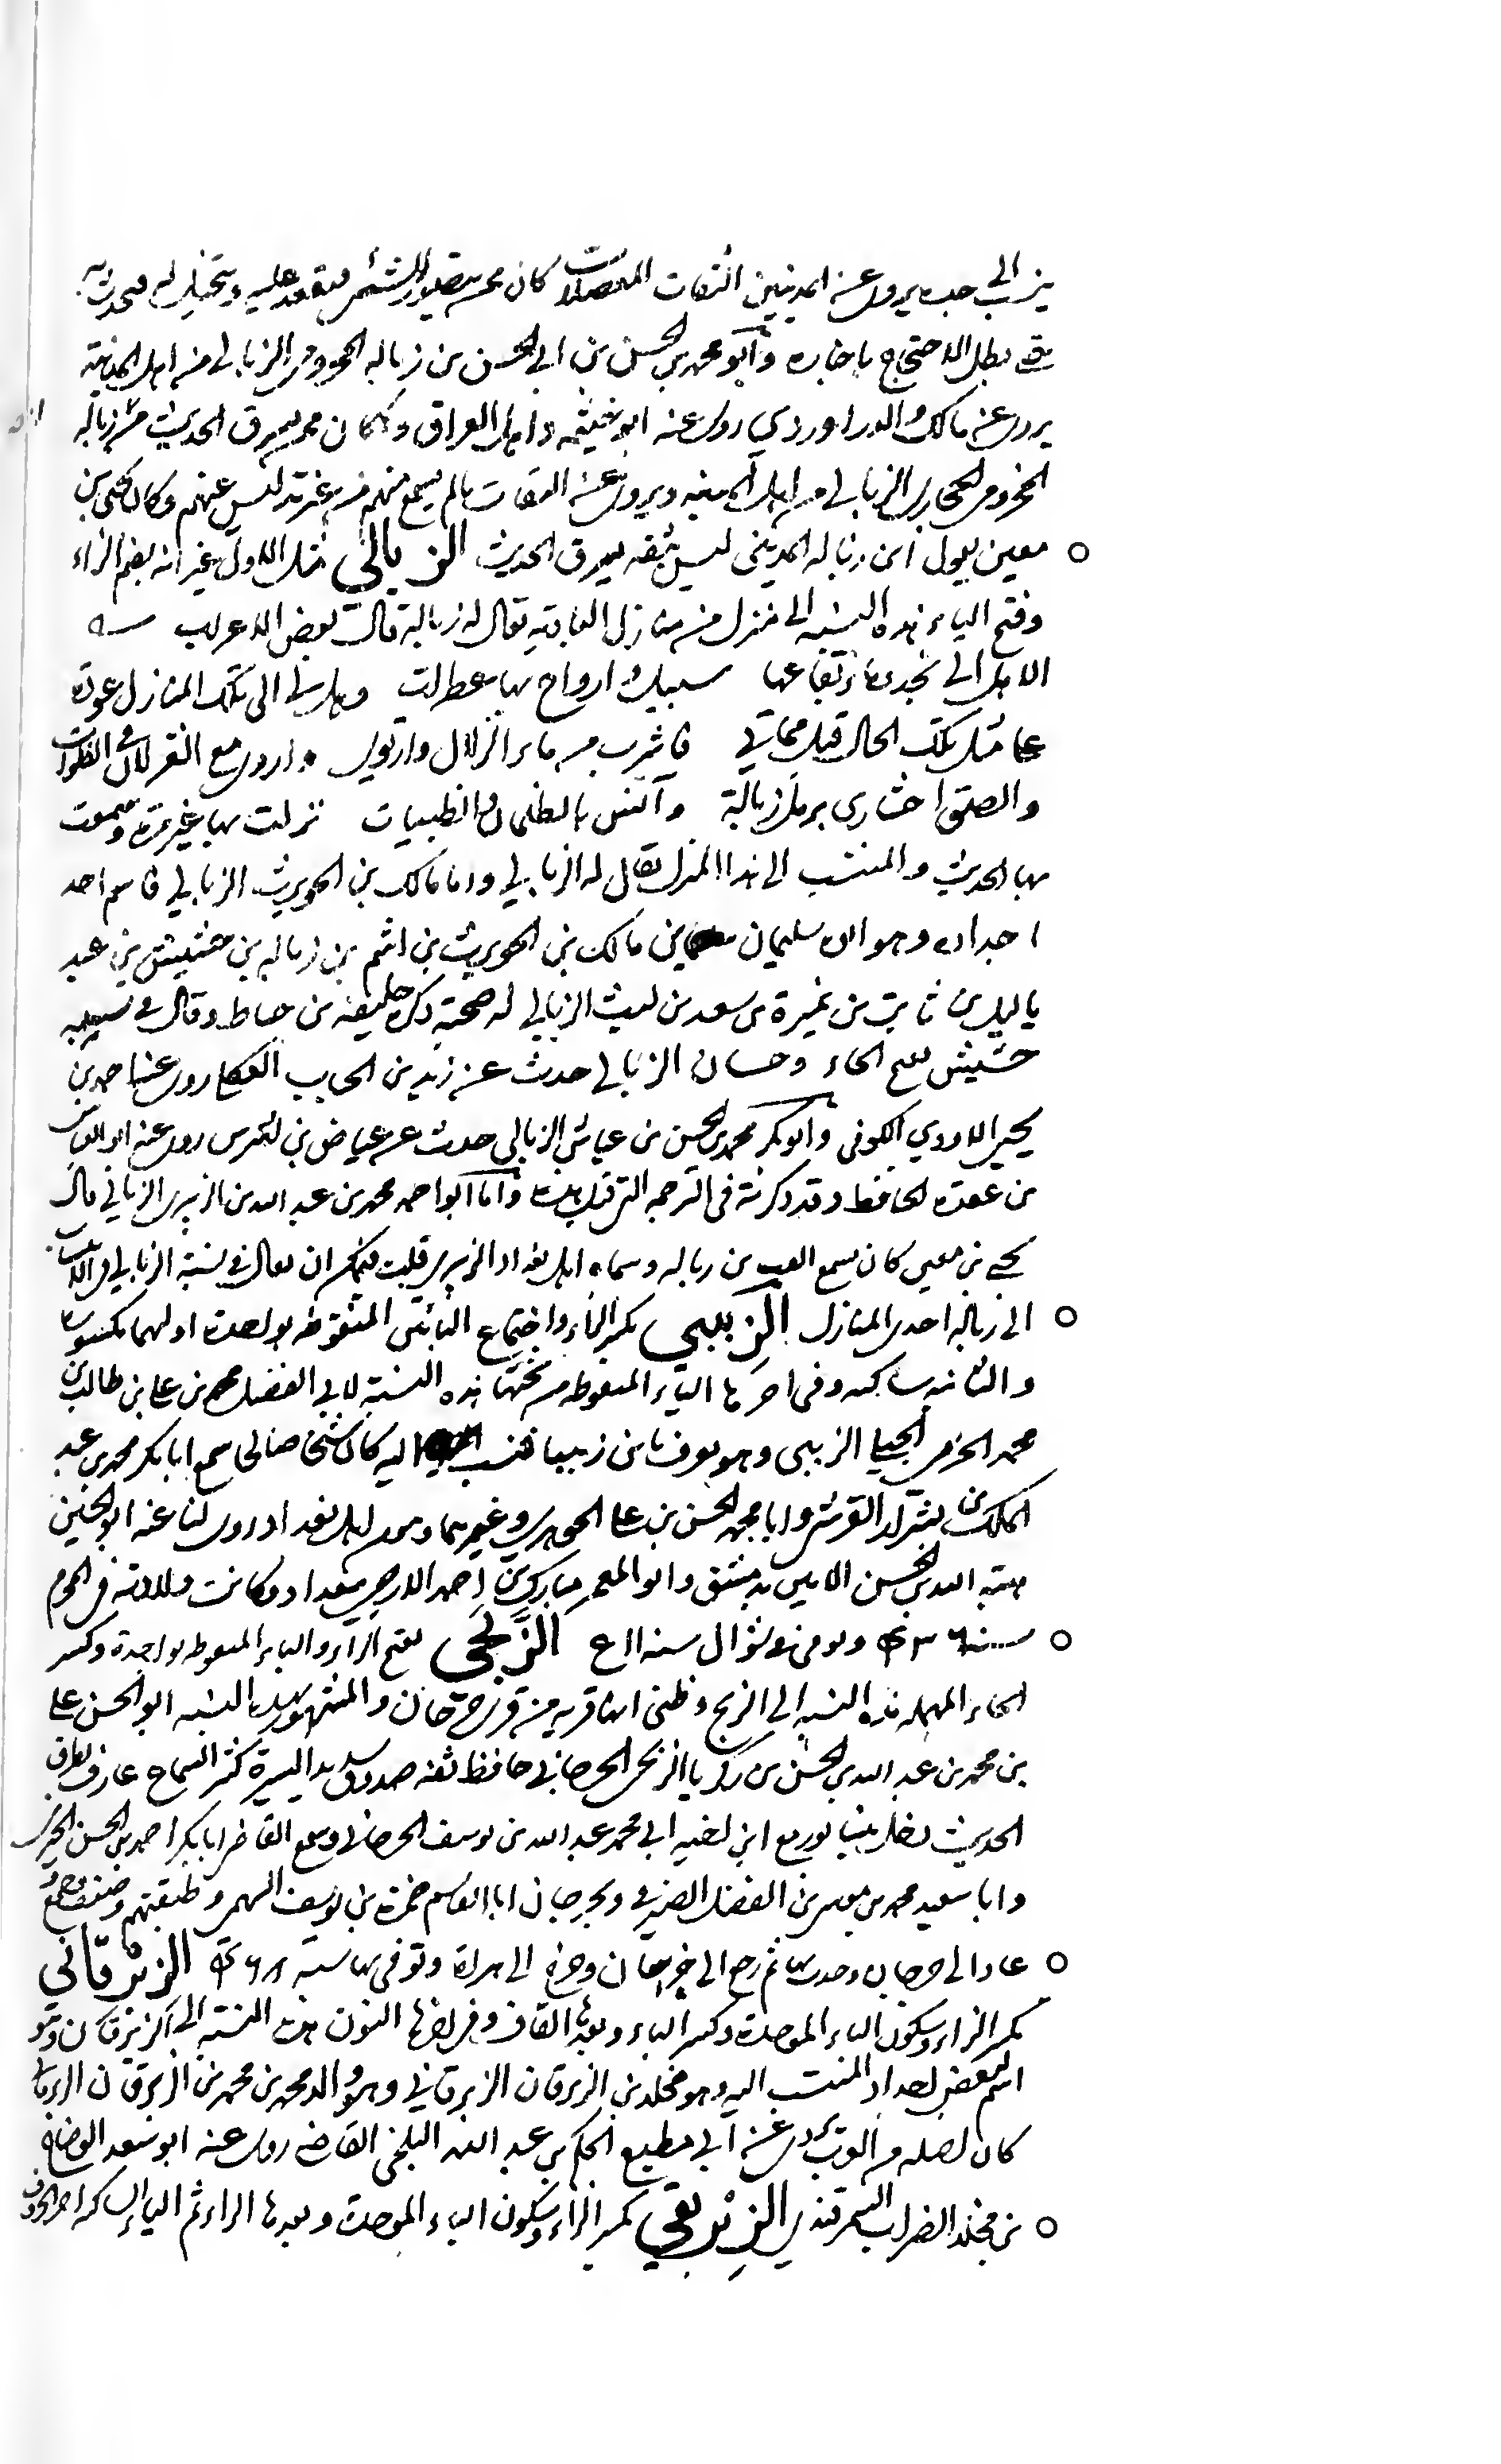 ينسب الى جده يروى عن المدنيين الثقات المعضلات كان محمد يتصور له الشئ فيعقد عليه ويتخيل له فيحدث به
حتى بطل الاحتجاج باخباره وابو محمد بن الحسن بن ابي الحسن بن زباله المخزومى الزبالى من اهل المدينة
يروى عن مالك والدراوردي روى عنه ابو خيثمه واهل العراق وكان ممن يسرق الحديث من زباله
المخزومى الحجازى الزبالى من اهل المدينه ويروى عن الثقات ما لم يسمع منهم من غير تدليس عنهم وكان يحيى بن
معين يقول ابن زباله المدينى ليس بثقه يسرق الحديث الزبالي مثل الاول غير انه بضم الزاء
وفتح الباء هذه النسبه الى منزل من منازل البادية يقال له زبالة قال بعض الاعراب
الا هل الى نجد وماء بقاعها سبيل وارواح بها عطرات وهل لي الى تلك المنازل عودة
على مثل تلك الحال قبل مماتي فاشرب من ماء الزلال وارتوى وارعى مع الغزلان فى الفلوات
والصق احشائى برمل زبالة وآنس بالظلمان والظبيات نزلت بها غير مرة وسمعت
بها الحديث والمنتسب الى هذا المنزل يقال له الزبالي واما مالك بن الحويرث الزبالي فاسم احد
اجداده وهو ابو سليمان مالك بن الحويرث بن اشيم بن زباله بن خشيش بن عبد
ياليل بن ناشب بن غيرة بن سعد بن ليث الزبالي له صحبة ذكره خليفه بن خياط وقال فى نسبه
حشيش بفتح الحاء وحسان الزبالى حدث عن زيد بن الحباب العكلي روى عنه احمد بن
يحيى الاودي الكوفى وابو بكر محمد بن الحسن بن عياش الزبالى حدث عن عياض بن اشرس روى عنه ابو العباس
بن عقدة الحافظ وقد ذكرته فى الترجمه التى قبل هذا واما ابو احمد محمد بن عبد الله بن الزبير الزبالى قال
يحيى بن معين كان يبيع القت بن زباله وسماه اهل بغداد الزبيرى قلت فيمكن ان يقال فى نسبته الزبالى
الى زباله احدى المنازل الزبيبي بكسر الزاء واجتماع البائين المنقوطه بواحدة اولهما مكسورة
والثانيه ساكنه وفى اخرها الباء المنقوطه من تحتها هذه النسبة لابي الفضل محمد بن علي بن طالب بن
محمد الحربى الزبيبى وهو يعرف بابن زبيبا فنسب اليه كان شيخا صالحا سمع ابا بكر محمد بن عبد
الملك بن بشران القرشى وابا محمد الحسن بن علي الجوهرى وغيرهما من اهل بغداد روى لنا عنه ابو الحسين
هبة الله بن الحسن الامين بدمشق وابو المعمر مبارك بن احمد الازجى ببغداد وكانت ولادته فى المحرم
سنة ٤٣٦ وتوفى فى شوال سنه ٥١١ الزبحي بفتح الزاء والباء المنقوطه بواحدة وكسر
الحاء المهمله هذه النسبه الى الزبح وظنى انها قريه من قرى جرجان والمشهور بهذه النسبه ابو الحسن علي
بن محمد بن عبد الله بن الحسن بن زكريا الزبحى الجرجاني حافظ ثقه صدوق سديد السيرة كثير السماع عارف بطرق
الحديث دخل نيسابور مع ابن اخيه ابي محمد عبد الله بن يوسف الجرجانى وسمع القاضى ابا بكر احمد بن الحسن الحيرى
وابا سعيد محمد بن موسى بن الفضل الصيرفى وبجرجان ابا القاسم حمزة بن يوسف السهمى وطبقتهم وصنف وجمع
عاد الى جرجان وحدث بها ثم رجع الى خراسان وخرج الى هراة وتوفى بها سنة ٤٦٨ الزبرقاني
بكسر الزاء وسكون الباء الموحدة وكسر الراء وبعدها القاف وفى اخرها النون هذه النسبه الى الزبرقان وهو
اسم لبعض اجداد المنتسب اليه وهو مخلد بن الزبرقان الزبرقاني وهو والد محمد بن محمد بن الزبرقان الزبرقانى
كان اصله من يروى عن ابي مطيع الحكم بن عبد الله البلخى القاضى روى عنه ابو سعد الوضاح
بن مخلد الضراب السمرقندى الزبريقي بكسر الزاء وسكون الباء الموحدة وبعدها الراء ثم الياء الساكنه اخر الحروف